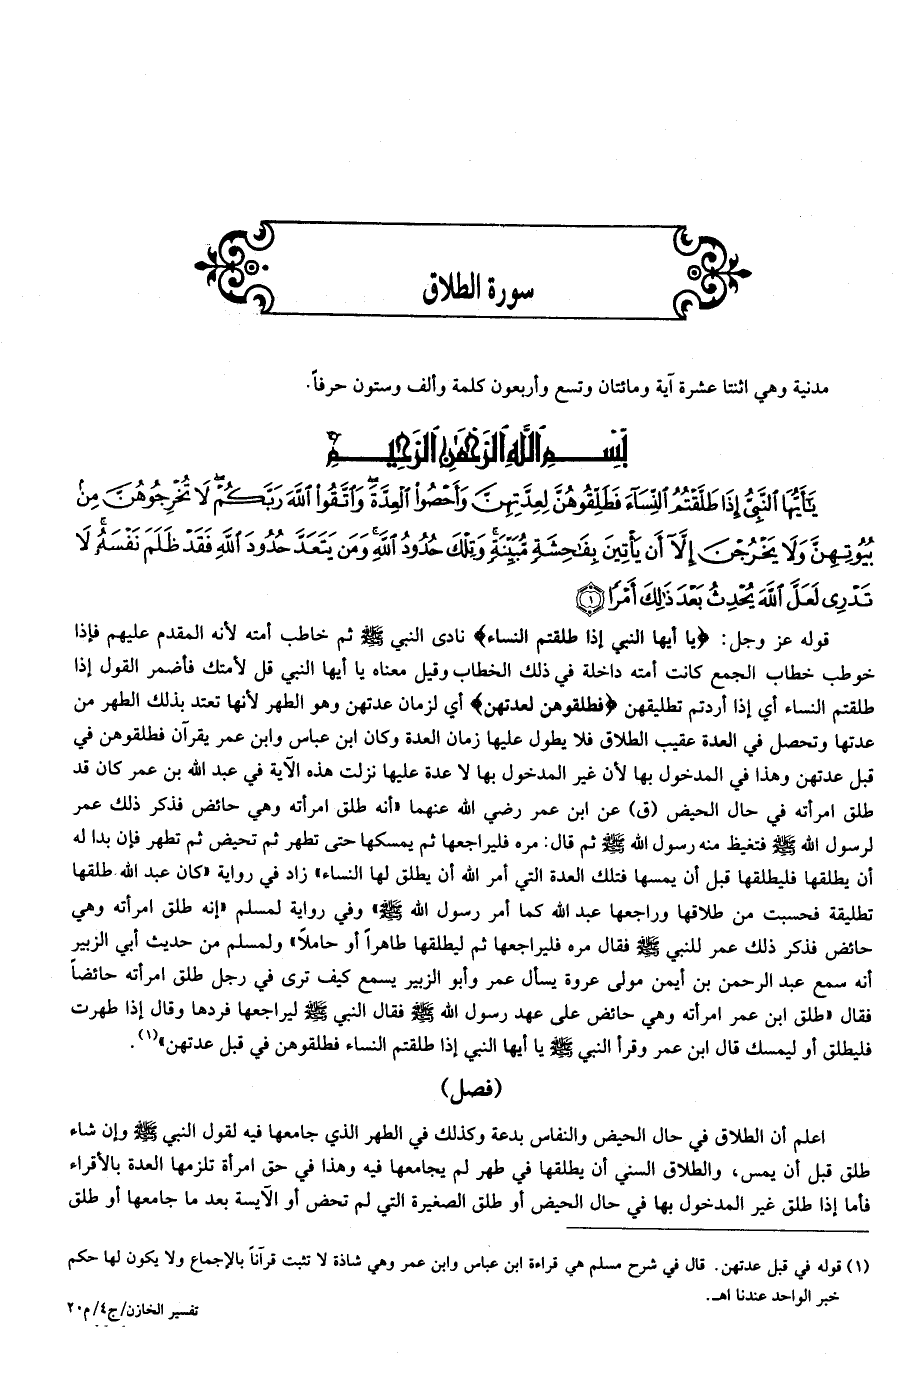 سورة الطلاق
مدنية وهي اثنتا عشرة آية ومائتان وتسع وأربعون كلمة وألف وستون حرفاً.
بِسْمِ ٱللَّهِ ٱلرَّحْمَٰنِ ٱلرَّحِيمِ
يَٰٓأَيُّهَا ٱلنَّبِىُّ إِذَا طَلَّقْتُمُ ٱلنِّسَآءَ فَطَلِّقُوهُنَّ لِعِدَّتِهِنَّ وَأَحْصُواْ ٱلْعِدَّةَۖ وَٱتَّقُواْ ٱللَّهَ رَبَّكُمْۖ لَا تُخْرِجُوهُنَّ مِنۢ
بُيُوتِهِنَّ وَلَا يَخْرُجْنَ إِلَّآ أَن يَأْتِينَ بِفَٰحِشَةٍ مُّبَيِّنَةٍۚ وَتِلْكَ حُدُودُ ٱللَّهِۚ وَمَن يَتَعَدَّ حُدُودَ ٱللَّهِ فَقَدْ ظَلَمَ نَفْسَهُۥۚ لَا
تَدْرِى لَعَلَّ ٱللَّهَ يُحْدِثُ بَعْدَ ذَٰلِكَ أَمْرًا ١
قوله عز وجل: ﴿يا أيها النبي إذا طلقتم النساء﴾ نادى النبي ﷺ ثم خاطب أمته لأنه المقدم عليهم فإذا
خوطب خطاب الجمع كانت أمته داخلة في ذلك الخطاب وقيل معناه يا أيها النبي قل لأمتك فأضمر القول إذا
طلقتم النساء أي إذا أردتم تطليقهن ﴿فطلقوهن لعدتهن﴾ أي لزمان عدتهن وهو الطهر لأنها تعتد بذلك الطهر من
عدتها وتحصل في العدة عقيب الطلاق فلا يطول عليها زمان العدة وكان ابن عباس وابن عمر يقرآن فطلقوهن في
قبل عدتهن وهذا في المدخول بها لأن غير المدخول بها لا عدة عليها نزلت هذه الآية في عبد الله بن عمر كان قد
طلق امرأته في حال الحيض (ق) عن ابن عمر رضي الله عنهما «أنه طلق امرأته وهي حائض فذكر ذلك عمر
لرسول الله ﷺ فتغيظ منه رسول الله ﷺ ثم قال: مره فليراجعها ثم يمسكها حتى تطهر ثم تحيض ثم تطهر فإن بدا له
أن يطلقها فليطلقها قبل أن يمسها فتلك العدة التي أمر الله أن يطلق لها النساء» زاد في رواية «كان عبد الله طلقها
تطليقة فحسبت من طلاقها وراجعها عبد الله كما أمر رسول الله ﷺ» وفي رواية لمسلم «إنه طلق امرأته وهي
حائض فذكر ذلك عمر للنبي ﷺ فقال مره فليراجعها ثم ليطلقها طاهراً أو حاملاً» ولمسلم من حديث أبي الزبير
أنه سمع عبد الرحمن بن أيمن مولى عروة يسأل عمر وأبو الزبير يسمع كيف ترى في رجل طلق امرأته حائضاً
فقال «طلق ابن عمر امرأته وهي حائض على عهد رسول الله ﷺ فقال النبي ﷺ ليراجعها فردها وقال إذا طهرت
فليطلق أو ليمسك قال ابن عمر وقرأ النبي ﷺ يا أيها النبي إذا طلقتم النساء فطلقوهن في قبل عدتهن»(١).
(فصل)
اعلم أن الطلاق في حال الحيض والنفاس بدعة وكذلك في الطهر الذي جامعها فيه لقول النبي ﷺ وإن شاء
طلق قبل أن يمس، والطلاق السني أن يطلقها في طهر لم يجامعها فيه وهذا في حق امرأة تلزمها العدة بالأقراء
فأما إذا طلق غير المدخول بها في حال الحيض أو طلق الصغيرة التي لم تحض أو الآيسة بعد ما جامعها أو طلق
(١) قوله في قبل عدتهن. قال في شرح مسلم هي قراءة ابن عباس وابن عمر وهي شاذة لا تثبت قرآناً بالإجماع ولا يكون لها حكم
خبر الواحد عندنا اهـ.
تفسير الخازن/ج٤/م٢٠